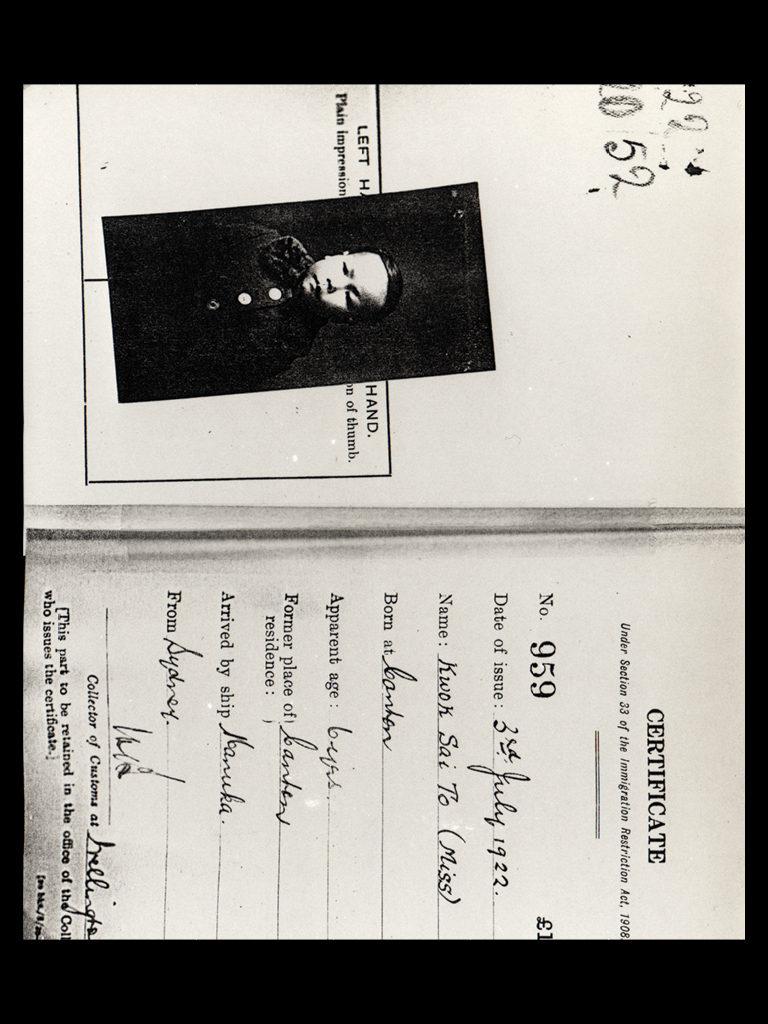 22
20 52
LEFT HA
Plain impression
HAND.
on of thumb.
CERTIFICATE
Under Section 33 of the Immigration Restriction Act, 1908.
No. 959 £1
Date of issue: 3rd. July 1922.
Name: Kwok Sai To (Miss)
Born at Canton
Apparent age: 6 yrs.
Former place of
residence: Canton
Arrived by ship Manuka.
From Sydney.
Collector of Customs at Wellingto
[This part to be retained in the office of the Coll
who issues the certificate.]